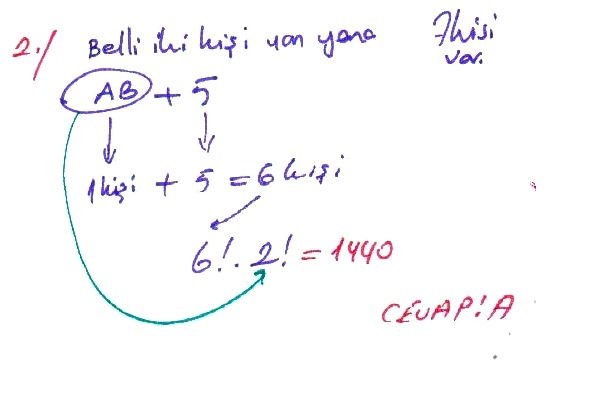 2./ Belli iki kişi yan yana 7kişi var.
AB + 5
1kişi + 5 = 6 kişi
6! . 2! = 1440
CEVAP: A